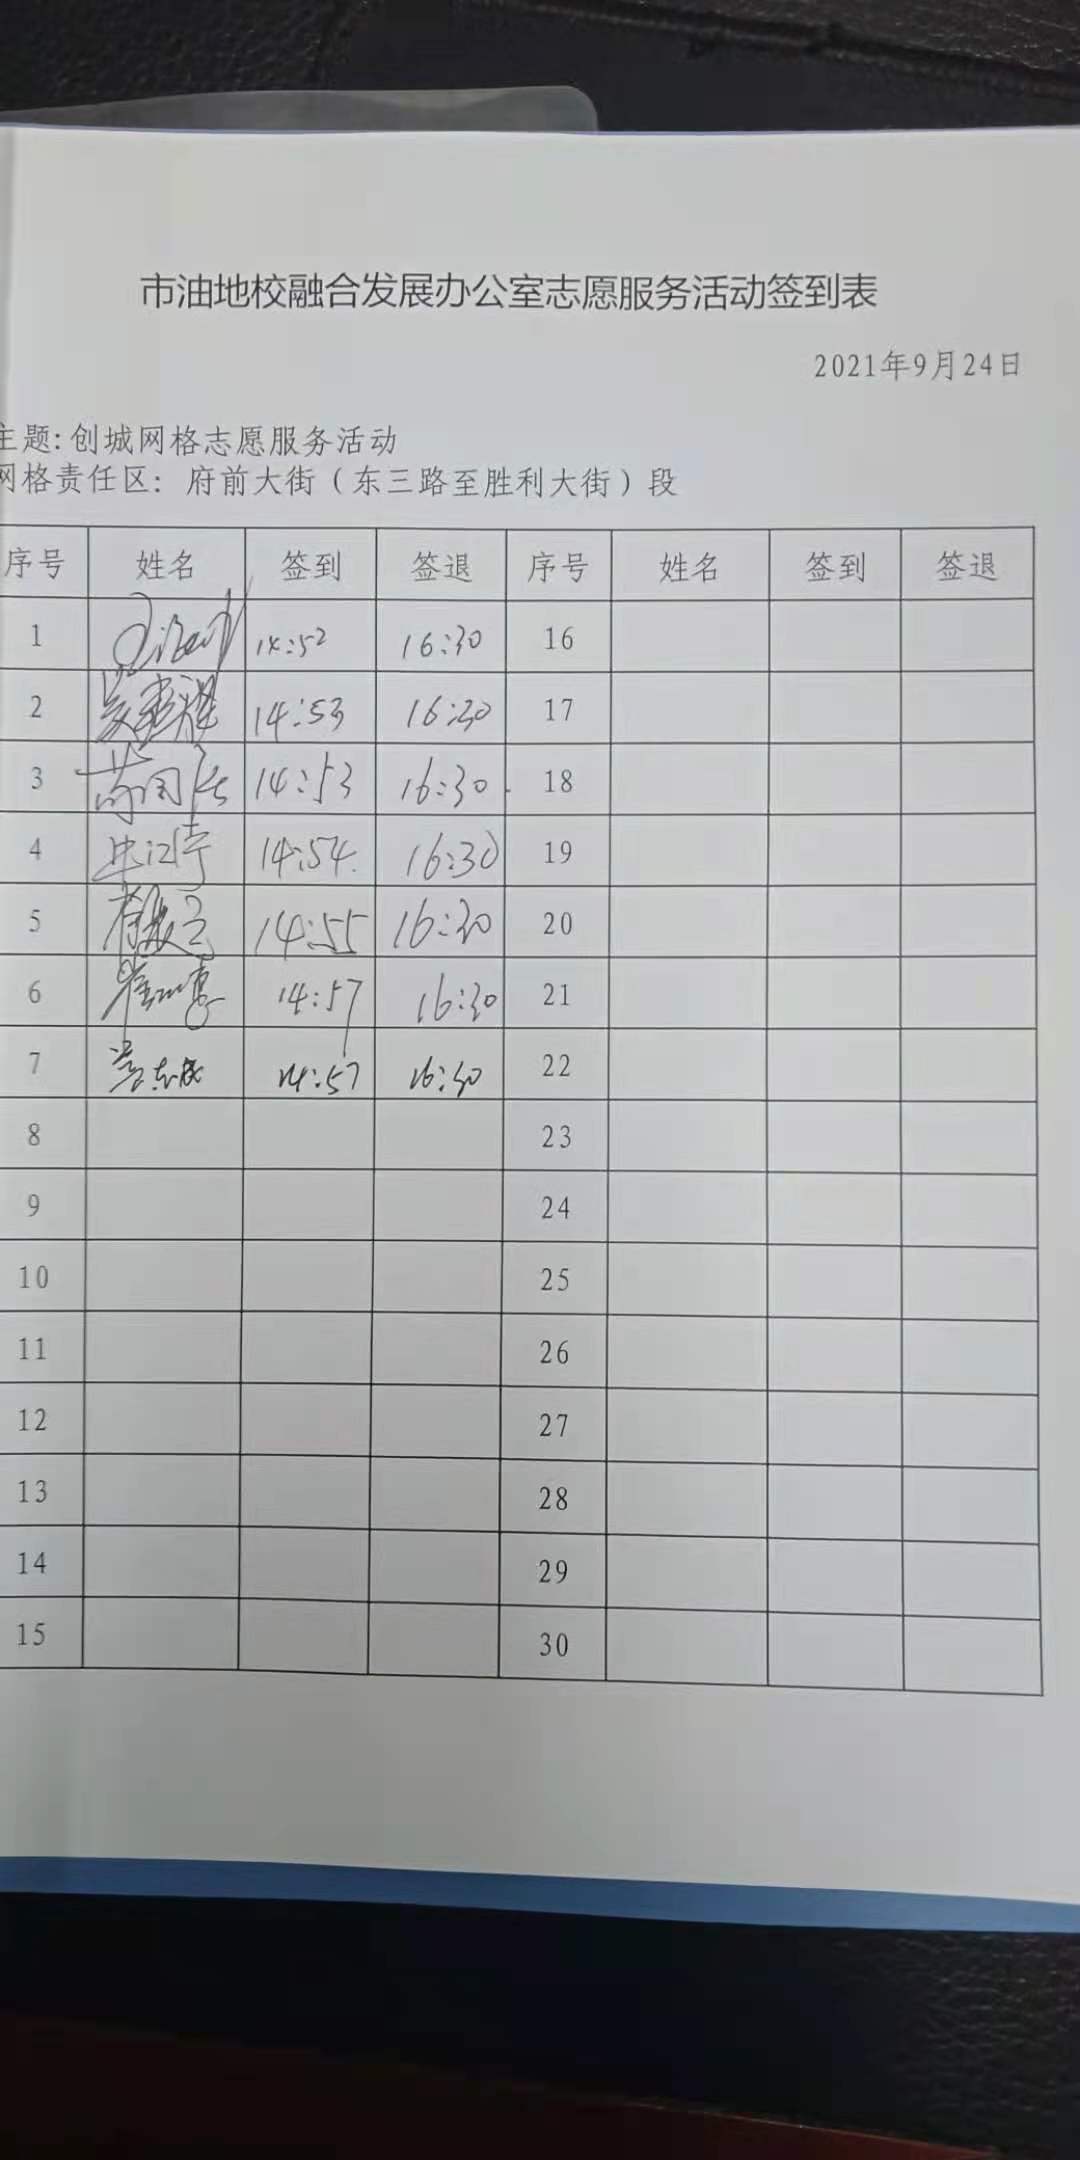 市油地校融合发展办公室志愿服务活动签到表
2021年9月24日
主题:创城网格志愿服务活动
网格责任区: 府前大街（东三路至胜利大街）段
序号 姓名 签到 签退 序号 姓名 签到 签退
1 14:52 16:30 16
2 14:53 16:30 17
3 14:53 16:30 18
4 14:54 16:30 19
5 14:55 16:30 20
6 14:57 16:30 21
7 14:57 16:30 22
8 23
9 24
10 25
11 26
12 27
13 28
14 29
15 30